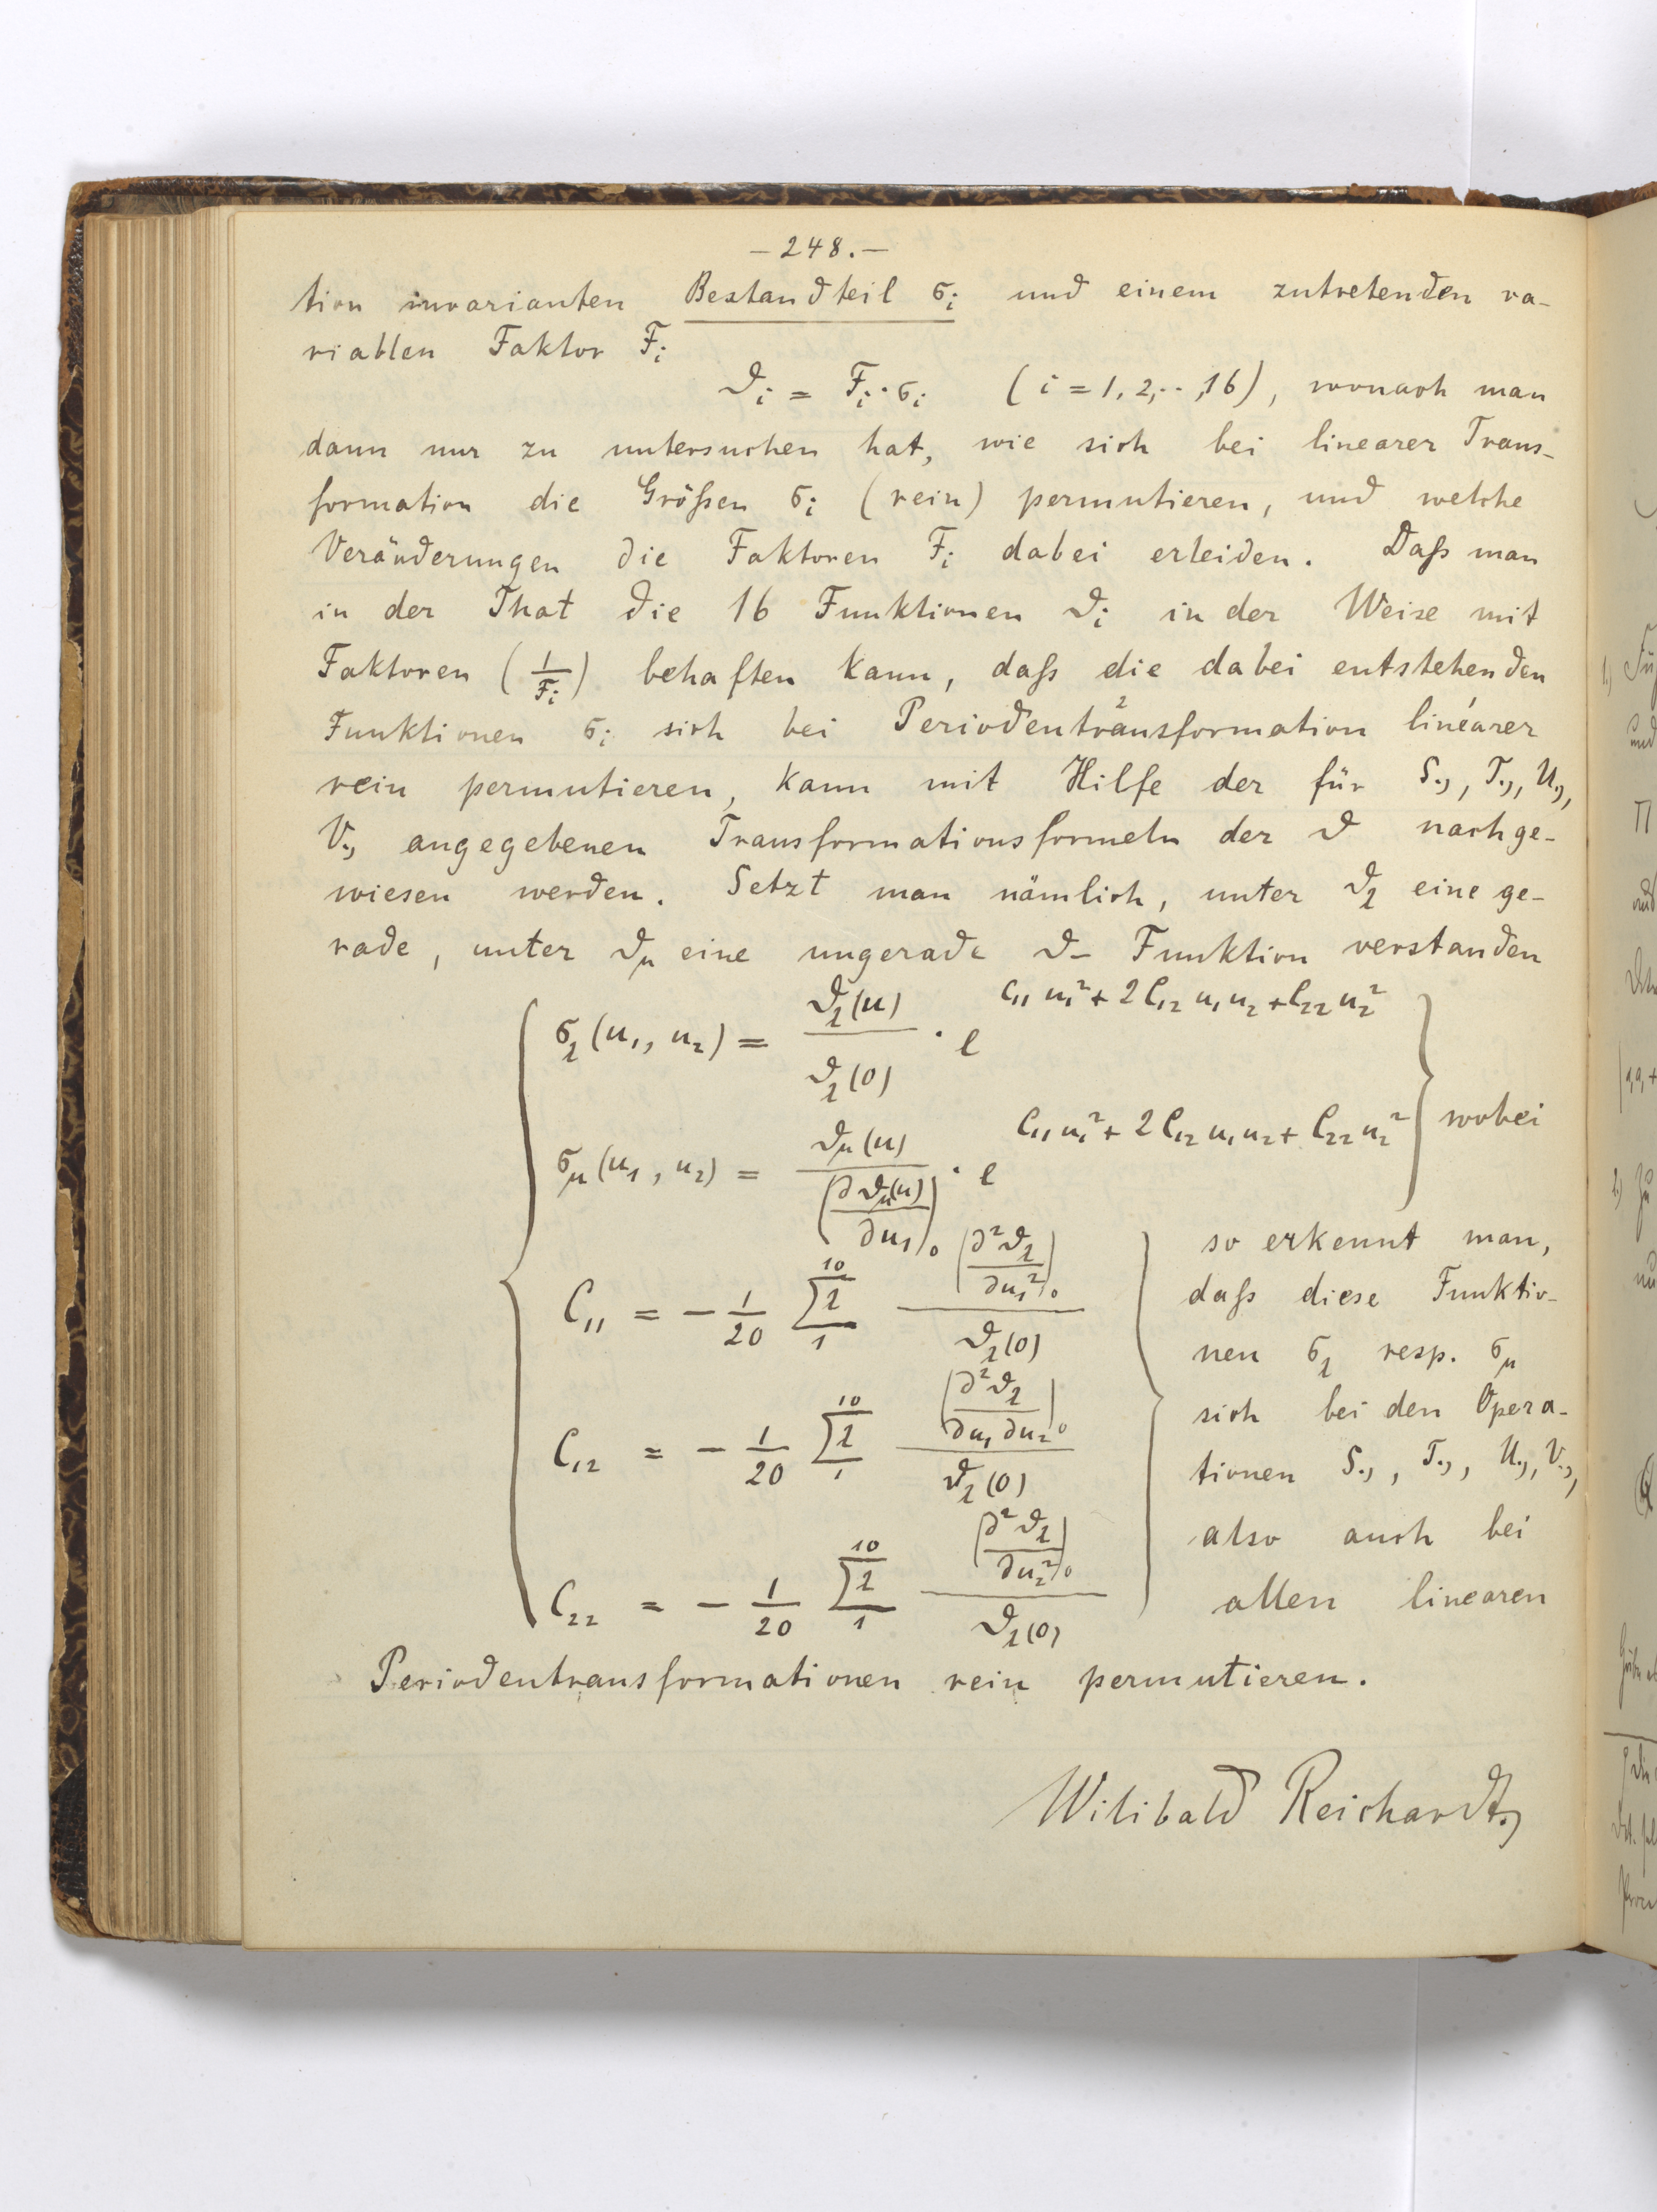 – 248. –
tion invarianten Bestandteil σ_i und einem zutretenden va-
riablen Faktor F_i
ϑ_i = F_i · σ_i (i = 1, 2, ··, 16), wonach man
dann nur zu untersuchen hat, wie sich bei linearer Trans-
formation die Größen σ_i (rein) permutieren, und welche
Veränderungen die Faktoren F_i dabei erleiden. Daß man
in der That die 16 Funktionen ϑ_i in der Weise mit
Faktoren (1/F_i) behaften kann, daß die dabei entstehenden
Funktionen σ_i sich bei Periodentransformation² linearer¹
rein permutieren, kann mit Hilfe der für S., T., U.,
V., angegebenen Transformationsformeln der ϑ nachge-
wiesen werden. Setzt man nämlich, unter ϑ_λ eine ge-
rade, unter ϑ_μ eine ungerade ϑ– Funktion verstanden
σ_λ(u_1, u_2) = ϑ_λ(u) / ϑ_λ(0) · e^{C_11 u_1² + 2C_12 u_1 u_2 + C_22 u_2²}
σ_μ(u_1, u_2) = ϑ_μ(u) / (∂ϑ_μ(u)/∂u_1)_0 · e^{C_11 u_1² + 2C_12 u_1 u_2 + C_22 u_2²} wobei
C_11 = – 1/20 Σ_λ_1^10 (∂²ϑ_λ/∂u_1²)_0 / ϑ_λ(0)
C_12 = – 1/20 Σ_λ_1^10 (∂²ϑ_λ/∂u_1 ∂u_2)_0 / ϑ_λ(0)
C_22 = – 1/20 Σ_λ_1^10 (∂²ϑ_λ/∂u_2²)_0 / ϑ_λ(0)
so erkennt man,
daß diese Funktio-
nen σ_λ resp. σ_μ
sich bei den Opera-
tionen S., T., U., V.,
also auch bei
allen linearen
Periodentransformationen rein permutieren.
Wilibald Reichardt.